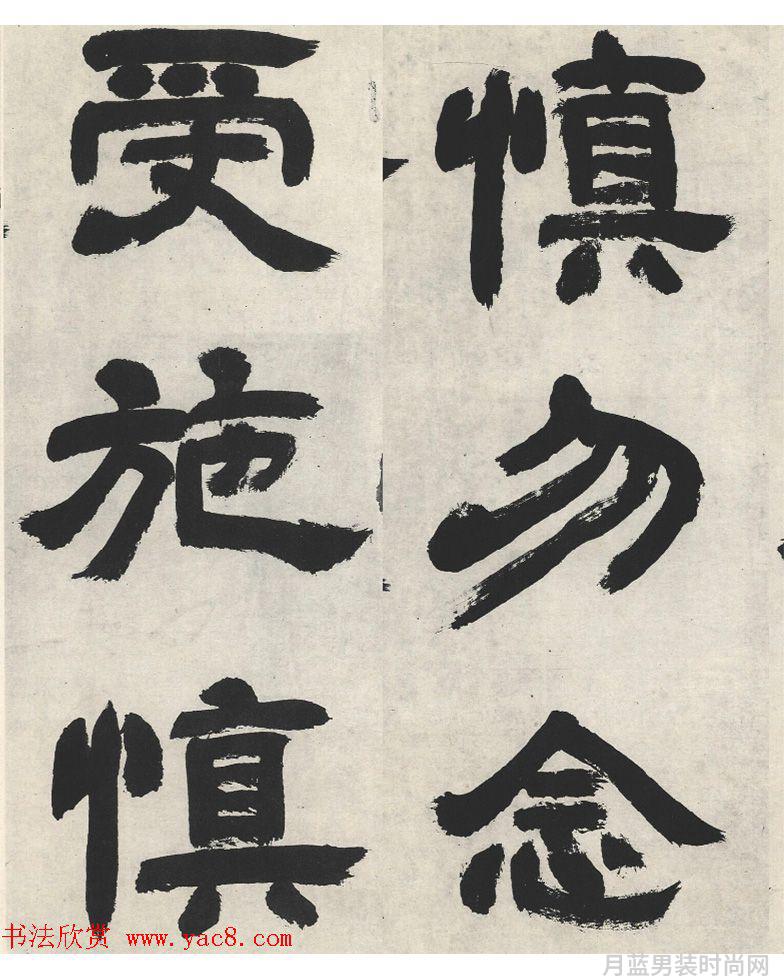 慎勿念
受施慎
书法欣赏 www.yac8.com
月蓝男装时尚网